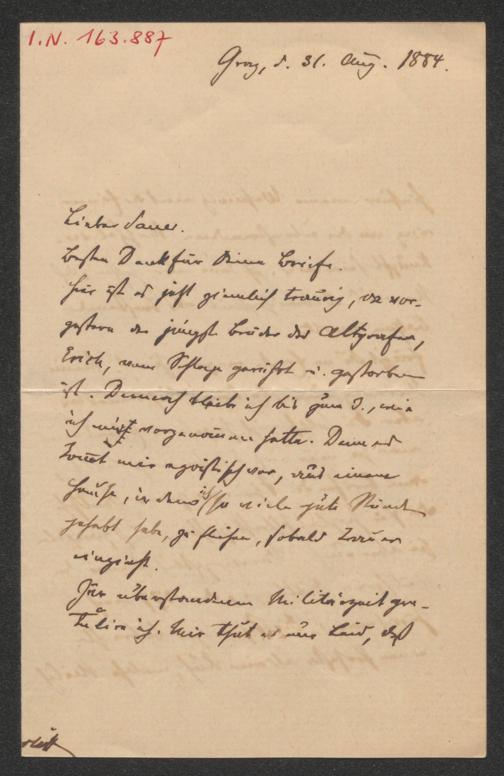 I.N. 163.887
Graz, d. 31. Aug. 1884.
Lieber Sauer.
Besten Dank für Deine Briefe.
Hier ist es jetzt ziemlich traurig, da vor-
gestern der jüngste Bruder des Altgrafen,
Erich, vom Schlage gerührt u. gestorben
ist. Dennoch bleibe ich bis zum 3., wie
ich mir's vorgenommen hatte. Denn es
kommt mir egoistisch vor, aus einem
Hause, in dem ich so viele gute Stunden
gehabt habe, zu fliehen, sobald Trauer
eingieht.
Zur überstandenen Militärzeit gra-
tulire ich. Mir thut es nur Leid, daß